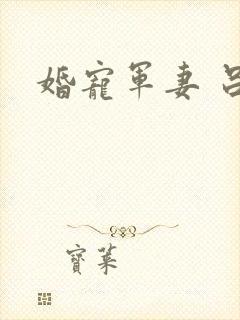 婚寵軍妻
寶菜